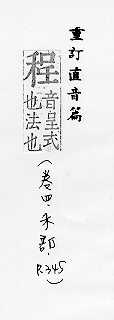 重訂直音篇
程
音呈式
也法也
(卷四·禾部·
P.345)